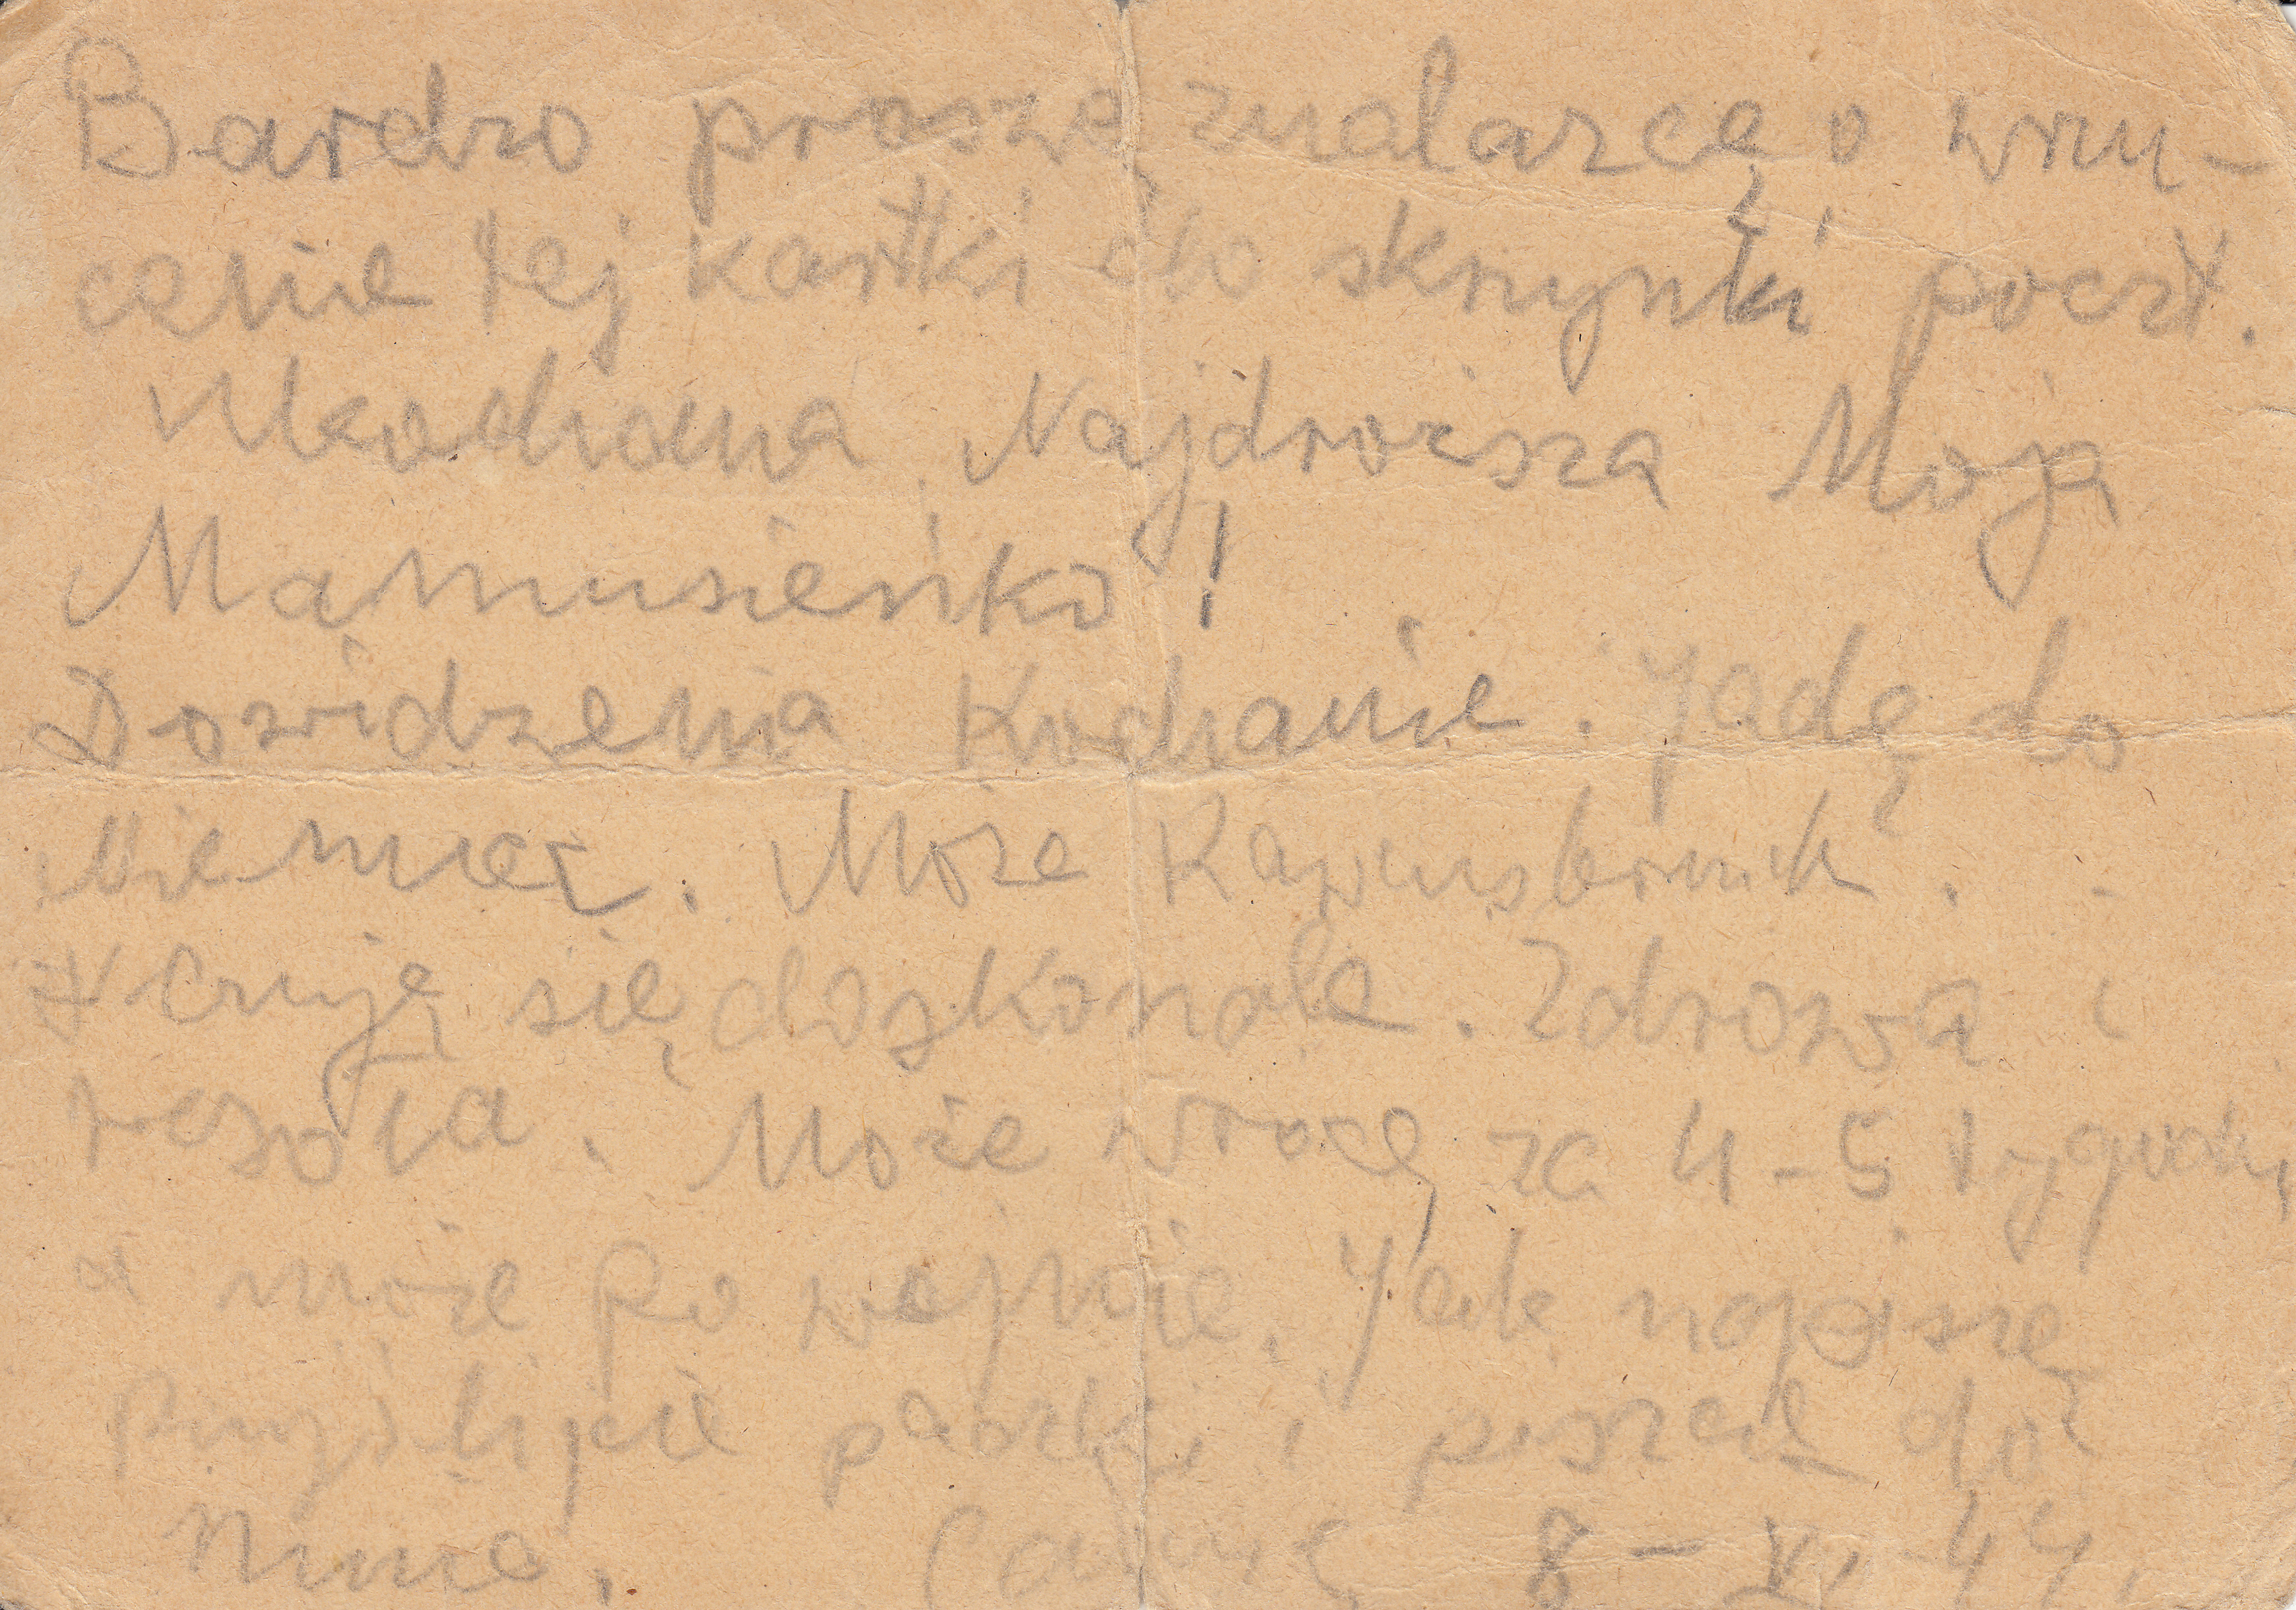 Bardzo proszę znalazcę o wrzu-
cenie tej kartki do skrzynki poczt.
Ukochana Najdroższa Moja
Mamusieńko!
Dowidzenia Kochanie. Jadę do
Niemiec. Może
Czuję się doskonale. Zdrowa i
wesoła. Może wrócę za 4-5 tygodni,
a może po wojnie. Jak napiszę
Przyślijcie paczkę i piszcie do
mnie. Całuję 8-XI-44.